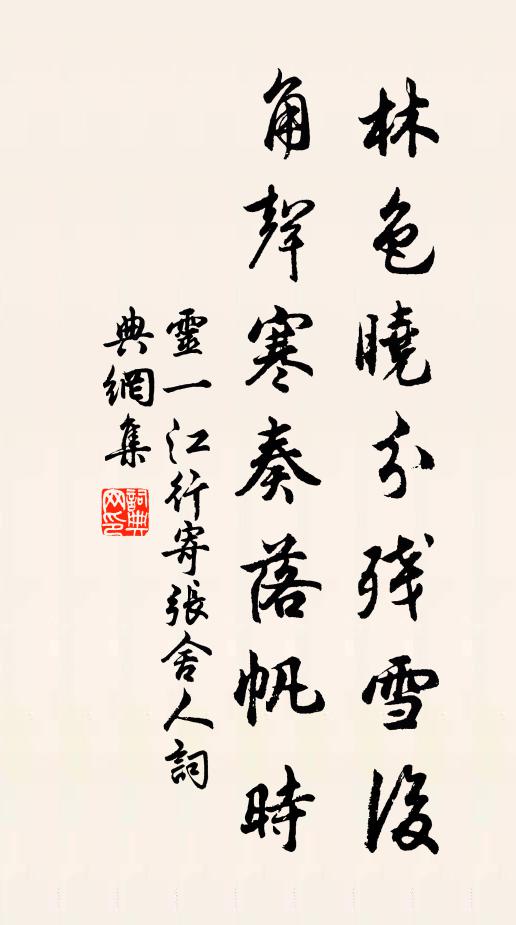 林色曉分残雪後
角聲寒奏落帆時
靈一江行寄張舍人詞
典網集
詞典网印